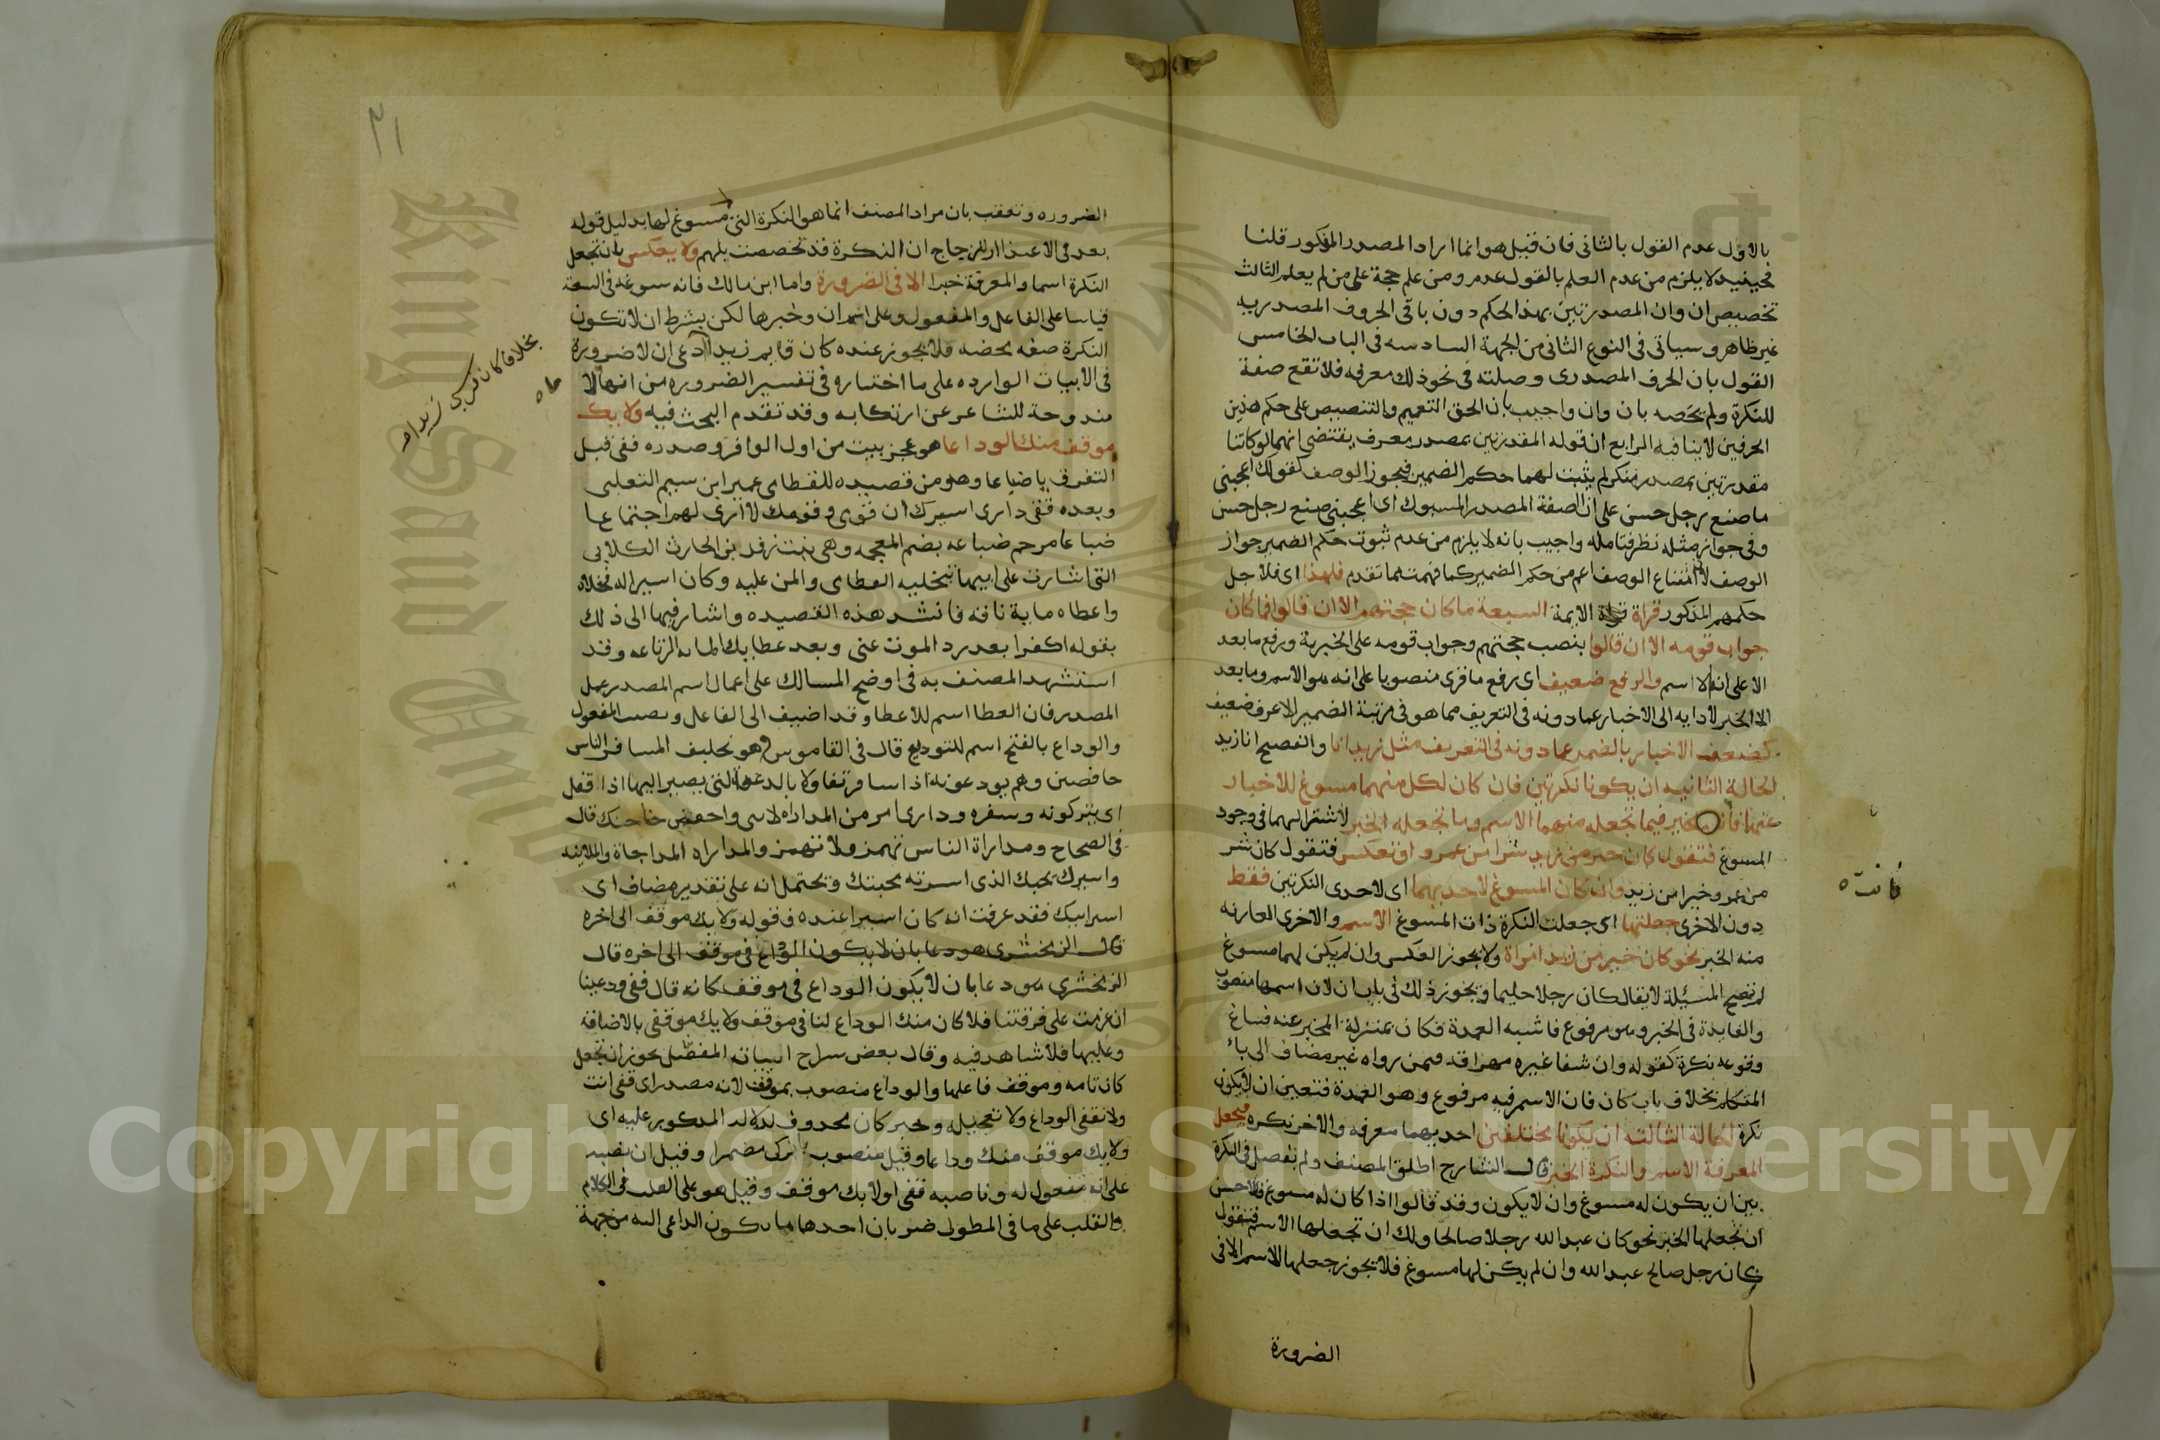 بالاول عدم القول بالثانى فان قيل هو انما اراد المصدر المذكور قلنا
فحينئذ لا يلزم من عدم العلم بالقول عدمه ومن علم حجة على من لم يعلم الثالث
تخصيص ان وان المصدرتين بهذا الحكم دون باقى الحروف المصدريه
غير ظاهر وسياتى فى النوع الثانى من الجهة السادسه فى الباب الخامس
القول بان الحرف المصدرى وصلته فى نحو ذلك معرفه فلا تقع صفة
للنكرة ولم يخصه بان وان واجيب بان الحق التعميم والتنصيص على حكم هذين
الحرفين لا ينافيه الرابع ان قوله المقدرتين بمصدر معرف يقتضى انهما لو كانتا
مقدرتين بمصدر منكر لم يثبت لهما حكم الضمير فيجوز الوصف كقولك اعجبنى
ما صنع رجل حسن على ان الصفة المصدر المسبوك اى اعجبنى صنع رجل حسن
وفى جواز مثله نظر فتامله واجيب بانه لا يلزم من عدم ثبوت حكم الضمير جواز
الوصف لان امتناع الوصف اعم من حكم الضمير كما فهمت مما تقدم فلهذا اى فلاجل
حكمهم المذكور قراة الايمة السبعة ما كان حجتهم الا ان قالوا فما كان
جواب قومه الا ان قالوا بنصب حجتهم وجواب قومه على الخبرية ورفع ما بعد
الا على انه الاسم والرفع ضعيف اى رفع ما قرى منصوبا على انه هو الاسم وما بعد
الا الخبر لادايه الى الاخبار عما دونه فى التعريف مما هو فى مرتبة الضمير الاعرف ضعيف
كضعف الاخبار بالضمير عما دونه فى التعريف مثل زيد انا والفصيح انا زيد
الحالة الثانيه ان يكونا نكرتين فان كان لكل منهما مسوغ للاخبار
عنها فانت مخير فيما تجعله منهما الاسم وما تجعله الخبر لاشتراكهما فى وجود
المسوغ فتقول كان خير من زيد شرا من عمرو او تعكس فتقول كان شر
من عمرو خيرا من زيد وان كان المسوغ لاحديهما اى لاحدى النكرتين فقط
دون الاخرى جعلتها اى جعلت النكرة ذات المسوغ الاسم والاخرى العاريه
منه الخبر نحو كان خير من زيد امراة ولا يجوز العكس وان لم يكن لهما مسوغ
لم تصح المسئلة لا يقال كان رجلا حليما ويجوز ذلك فى باب ان لان اسمها منصوب
والفايدة فى الخبر وهو مرفوع فاشبه العمدة فكان بمنزلة المخبر عنه فساغ
وقوعه نكرة كقوله وان شفا غيره مهراقه فيمن رواه غير مضاف الى ياء
المتكلم بخلاف باب كان فان الاسم فيه مرفوع وهو العمدة فتعين ان لا يكون
نكرة الحالة الثالثه ان يكونا مختلفتين احديهما معرفه والاخر نكره فيجعل
المعرفة الاسم والنكرة الخبر قال الشارح اطلق المصنف ولم يفصل فى النكرة
بين ان يكون له مسوغ وان لا يكون وقد قالوا اذا كان له مسوغ فالاحسن
ان تجعلها الخبر نحو كان عبد الله رجلا صالحا ولك ان تجعلها الاسم فتقول
كان رجل صالح عبد الله وان لم يكن لها مسوغ فلا يجوز جعلها الاسم الا فى
الضرورة
فانت ه
٣١
الضروره وتعقب بان مراد المصنف انما هو النكرة التى مسوغ لها بدليل قوله
بعد فى الاعتذار للزجاج ان النكرة قد تخصصت بلهم ولا يعكس بان تجعل
النكرة اسما والمعرفة خبرا الا فى الضرورة واما ابن مالك فانه سوغه فى السعة
قياسا على الفاعل والمفعول وعلى اسم ان وخبرها لكن بشرط ان لا تكون
النكرة صفه محضه فلا يجوز عنده كان قايم زيدا ادعى ان لا ضرورة
فى الابيات الوارده على ما اختاره فى تفسير الضروره من انها لا
مندوحة للشاعر عن ارتكابه وقد تقدم البحث فيه ولا يك
موقف منك الوداعا هو عجز بيت من اول الوافر وصدره قفى قبل
التفرق يا ضباعا وهو من قصيده للقطامى عمير ابن سييم التغلبى
وبعده قفى دارى اسيرك ان قومى وقومك لا ارى لهم اجتماعا
ضباعا مرخم ضباعه بضم المعجمه وهى بنت زفر بن الحارث الكلابى
التى اشارت على ابيها بتخليه القطامى والمن عليه وكان اسيرا له فخلاه
واعطاه ماية ناقه فانشد هذه القصيده واشار فيها الى ذلك
بقوله اكفرا بعد رد الموت عنى وبعد عطايك المايه الرتاعه وقد
استشهد المصنف به فى اوضح المسالك على اعمال اسم المصدر عمل
المصدر فان العطا اسم للاعطا وقد اضيف الى الفاعل ونصب المفعول
والوداع بالفتح اسم للتوديع قال فى القاموس وهو تخليف المسافر الناس
خافضين وهم يودعونه اذا سافر تفاولا بالدعة التى يصير اليها اذا قفل
اى يتركونه وسفره ودارى امر من المداراه
فى الصحاح ومداراة الناس تهمز ولا تهمز والمداراه المداجاة والملاينه
واسيرك محبك الذى اسرته بحبتك ويحتمل انه على تقدير مضاف اى
اسير ابيك فقد عرفت انه كان اسيرا عنده وقوله ولا يك موقف الى اخره
قال الزمخشرى هو دعا بان لا يكون الوداع فى موقف الى اخره قال
الزمخشرى هو دعا بان لا يكون الوداع فى موقف كانه قال قفى ودعينا
ان عزمت على فرقتنا فلا كان منك الوداع لنا فى موقف ولا يك موقفى بالاضافة
وعليها فلا شاهد فيه وقال بعض شراح ابياته المفصل يجوز ان تجعل
كان تامه وموقف فاعلها والوداع منصوب بموقف لانه مصدر اى قفى انت
ولا تقفى الوداع ولا تعجيله وخبر كان محذوف لدلالة المذكور عليه اى
ولا يك موقف منك وداعا وقيل منصوب بتركى مضمرا وقيل ان نصبه
على انه مفعول له وناصبه قفى اولا يك موقف وقيل هو على القلب فى الكلام
والقلب على ما فى المطول ضربان احدهما ما يكون الداعى اليه من جهة
بخلاف كان قرشى زيدا هـ
ط ه
King Saud University
Copyright © King Saud University